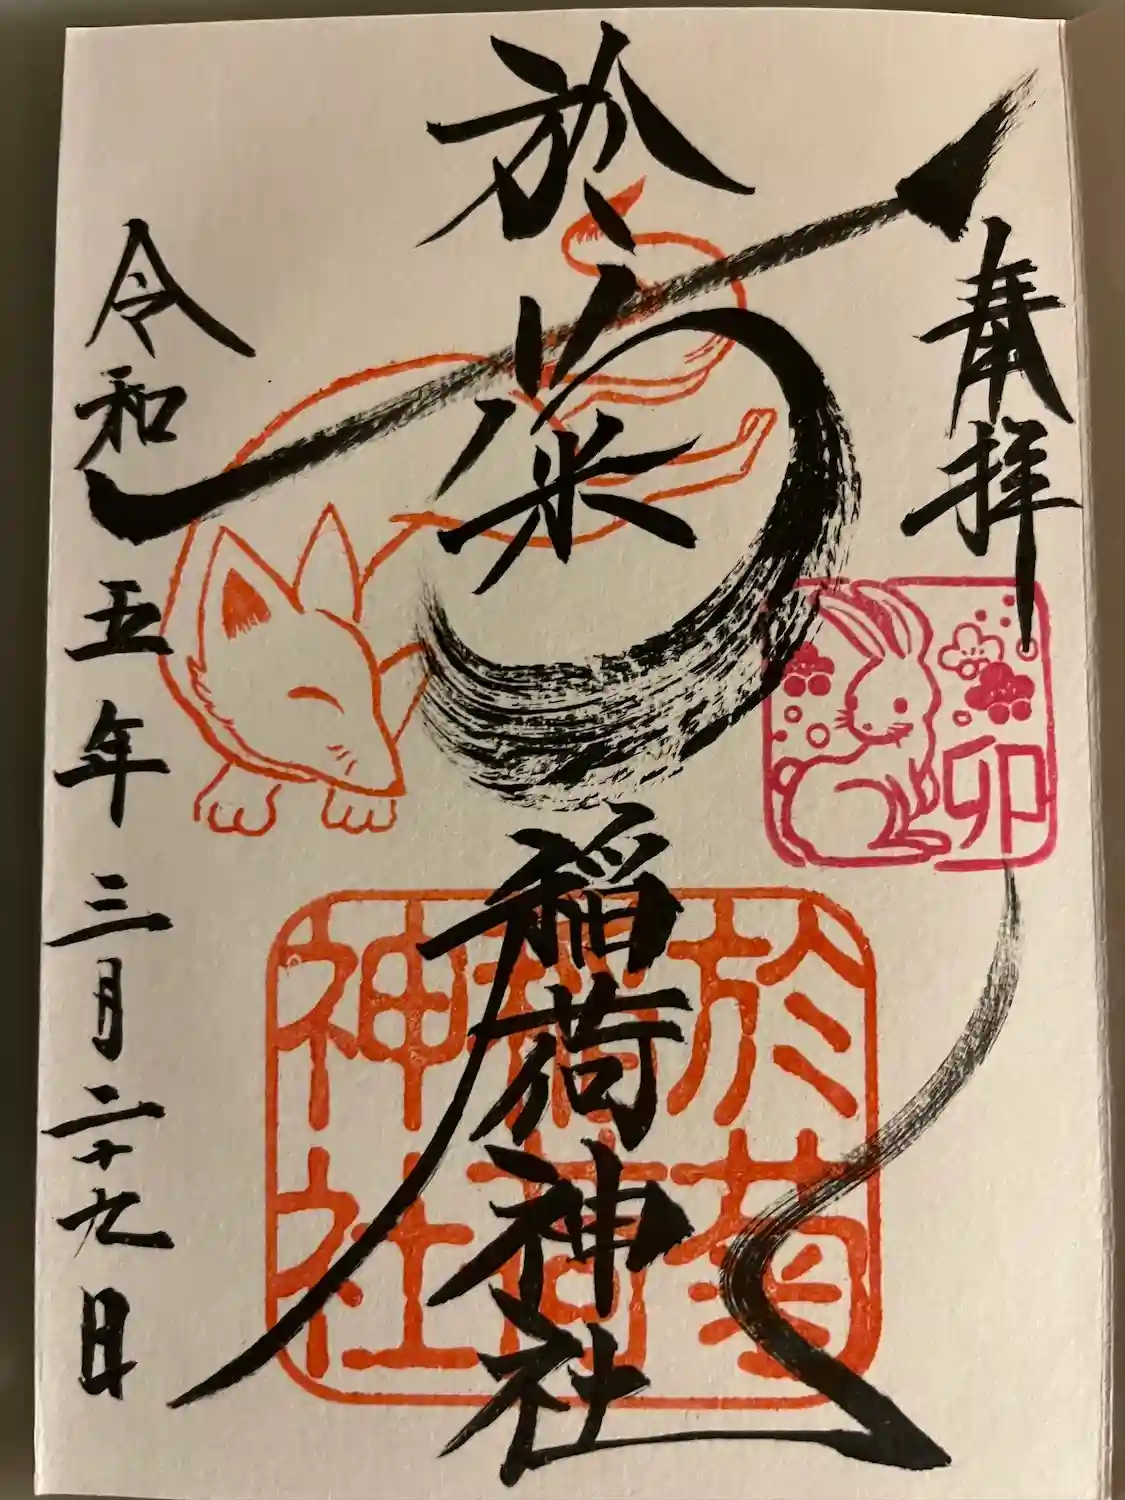 奉拝
卯
於菊稲荷神社
於菊稲荷神社
令和五年三月二十九日